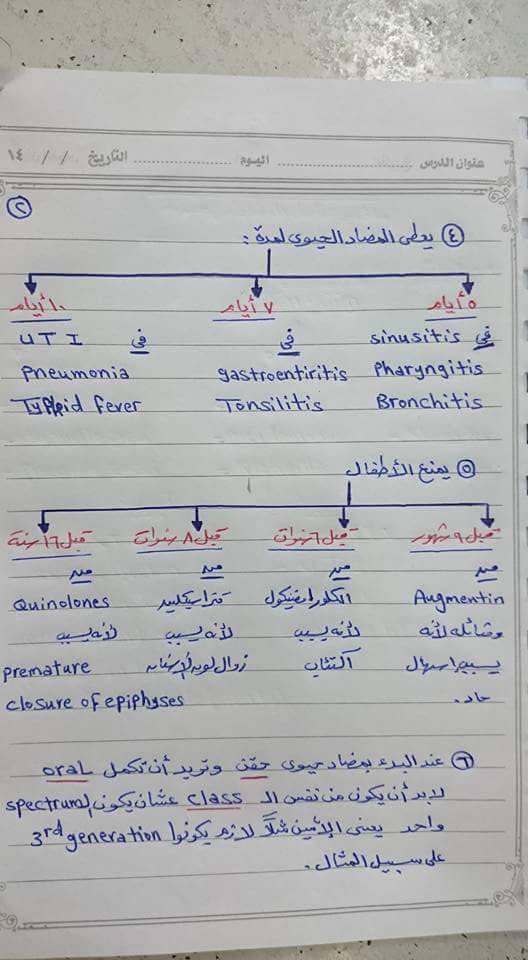 عنوان الدرس اليوم التاريخ / / ١٤
٢
٤ يعطى المضاد الحيوى لمدة :
٥ أيام ٧ أيام ١٠ أيام
فى sinusitis فى فى UTI
Pharyngitis gastroentiritis Pneumonia
Bronchitis Tonsilitis Typhoid Fever
٥ يمنع الأطفال
قبل ٩ شهور قبل ٦ سنوات قبل ٨ سنوات قبل ١٦ سنة
من من من من
Augmentin الكلورامفينيكول تتراسيكلين Quinolones
ومشائله لأنه لأنه يسبب لأنه يسبب لأنه يسبب
يسبب اسهال اكتئاب زوال لون الأسنان premature
حاد. closure of epiphyses
٦ عند البدء بمضاد حيوى حقن وتريد أن تكمل oral
لابد أن يكون من نفس الـ class عشان يكون spectrum
واحد يعنى الأتنين مثلاً لازم يكونوا 3rd generation
على سبيل المثال .